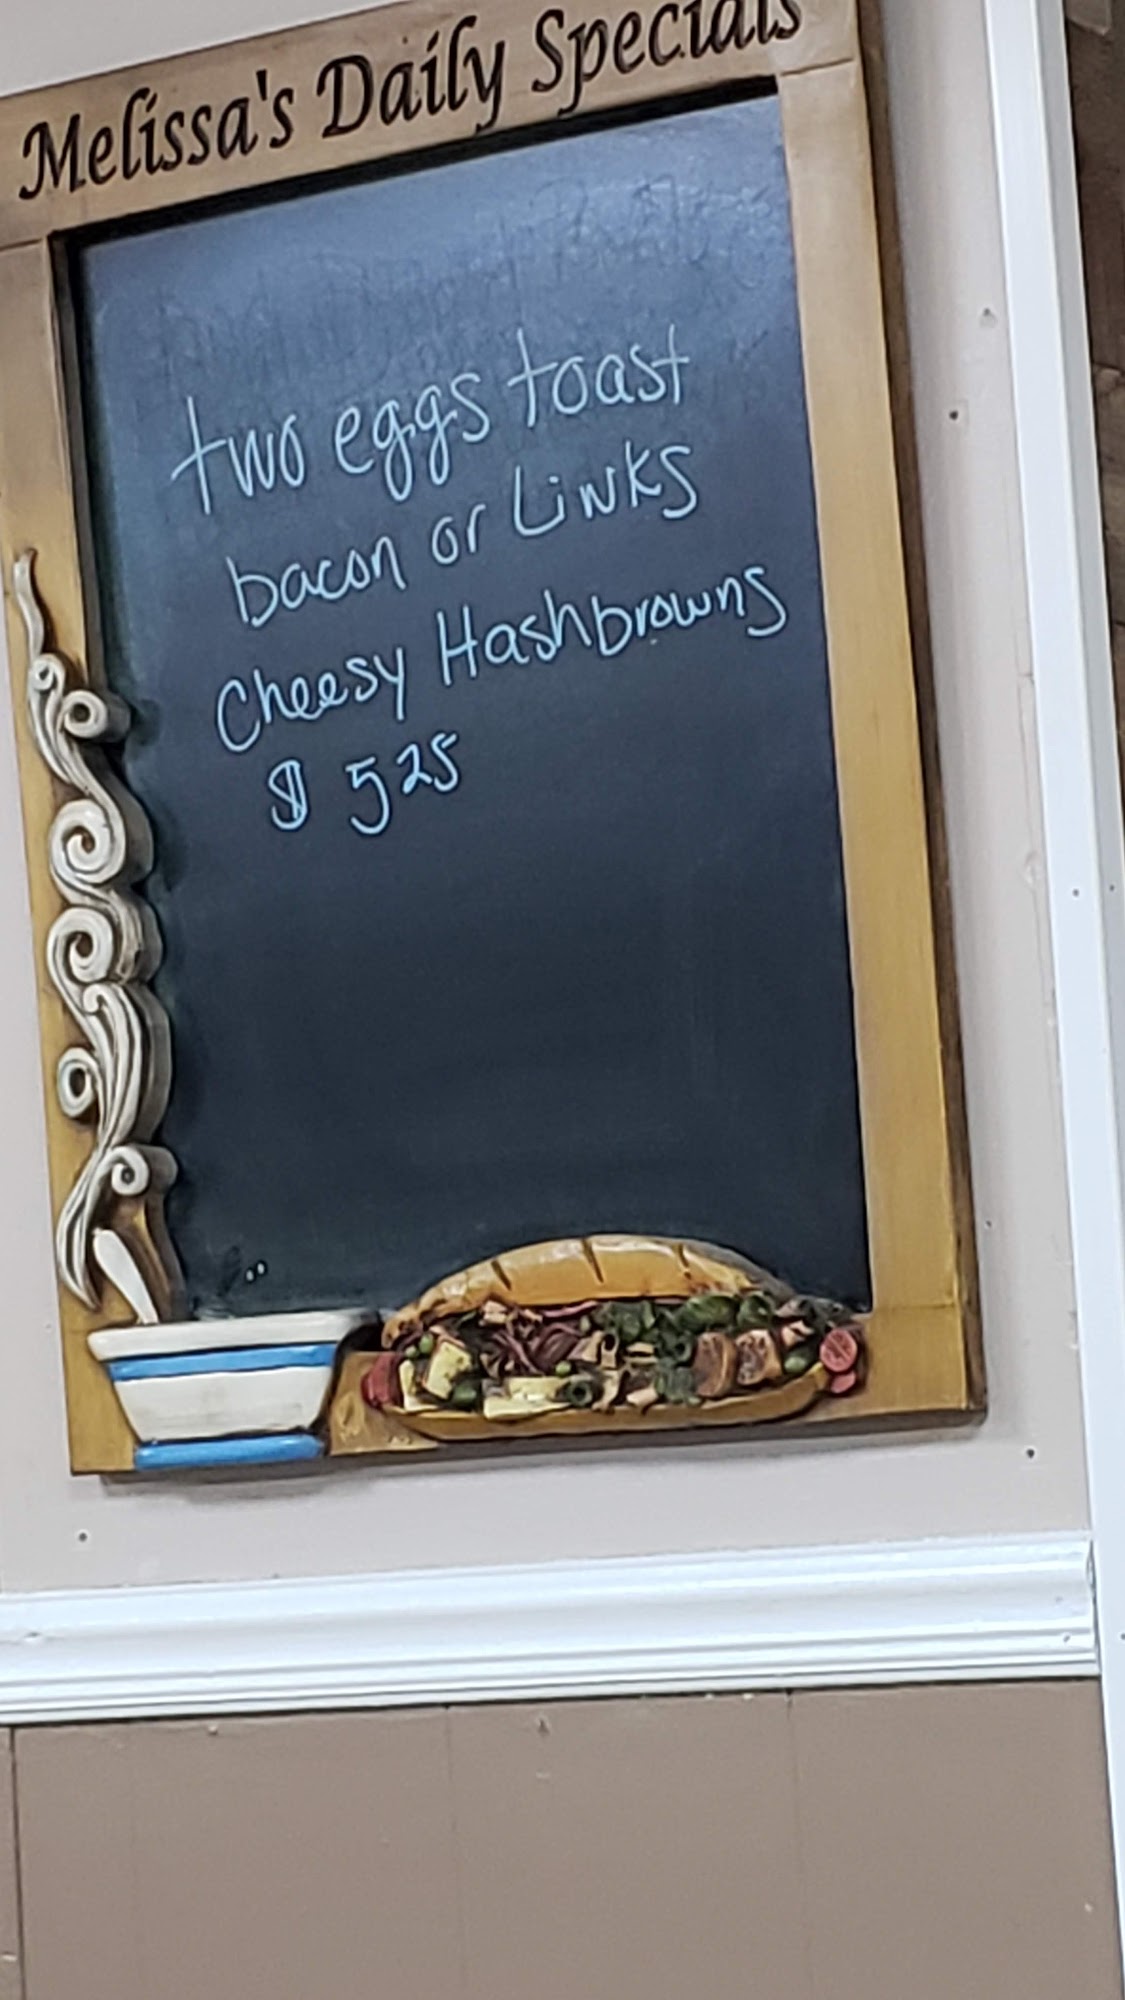 Melissa's Daily Specials
two eggs toast
bacon or Links
Cheesy Hashbrowns
$ 525